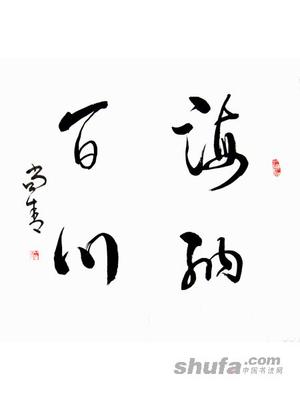 海纳
百川
尚青
shufa.com
中国书法网